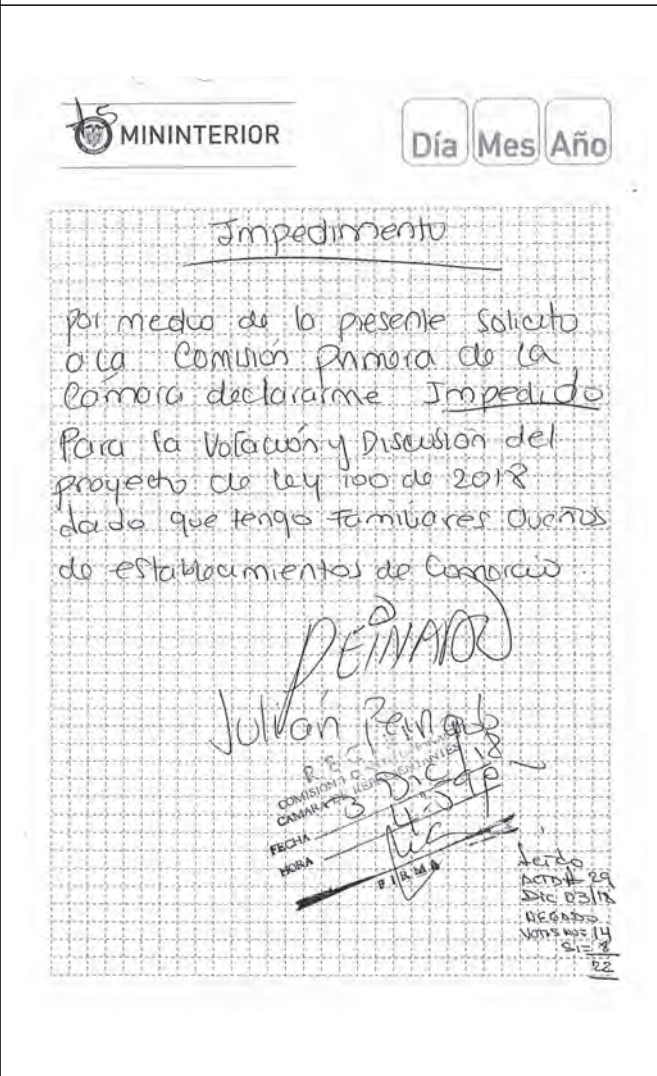 15
MININTERIOR
Día Mes Año
Impedimento
por medio de la presente solicito
a la Comisión Primera de la
Cámara declararme Impedido
Para la Votación y Discusión del
proyecto de ley 100 de 2018
dado que tengo Familiares dueños
de establecimientos de Comercio
PEINADO
Julián Peinado
COMISIÓN
CAMARA REPRESENTANTES
FECHA 3 Dic/18
HORA
FIRMA
Leido
ACTA # 29
Dic 03/18
NEGADO
VOTOS NO= 14
SI= 8
22